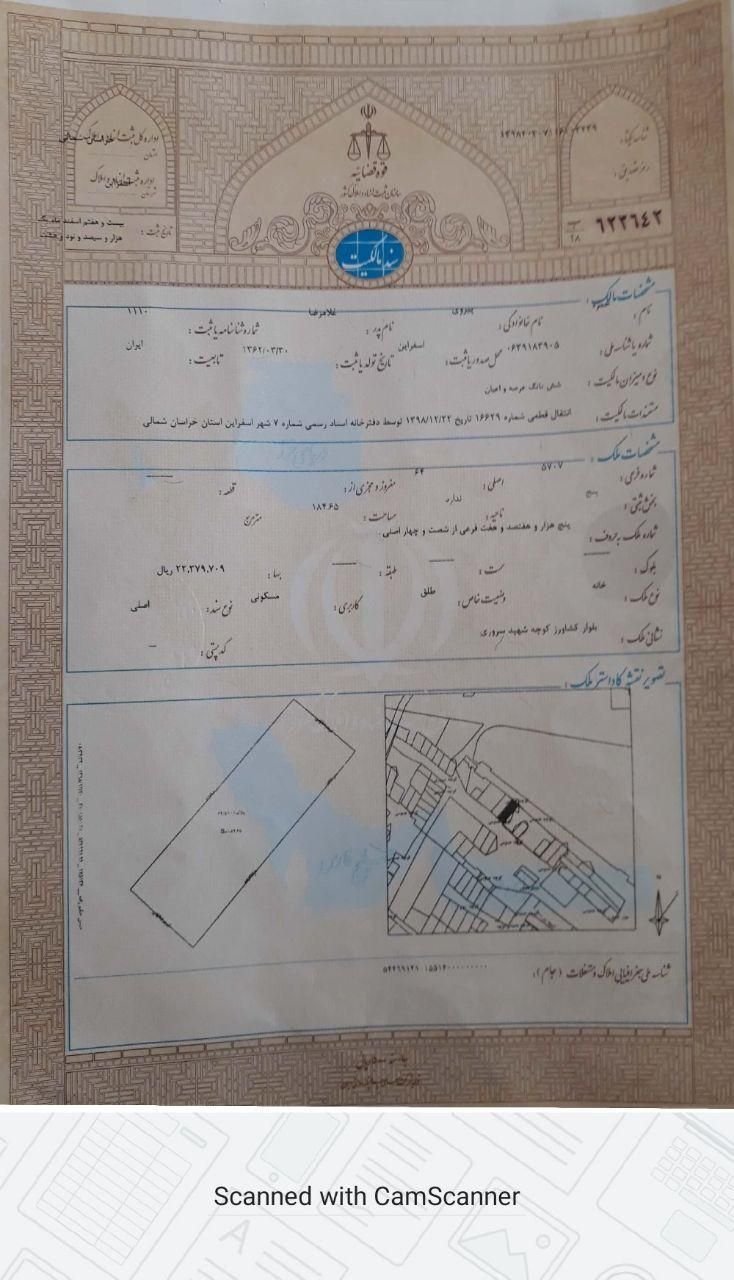 قوه قضائیه
سازمان ثبت اسناد و املاک کشور
شناسه یکتا:
رمز تصدیق:
۶۲۲۶۴۲
اداره کل ثبت اسناد و املاک خراسان شمالی
استان
اداره ثبت اسناد و املاک اسفراین
تاریخ ثبت: بیست و هفتم اسفند ماه یک
هزار و سیصد و نود و هشت
سند مالکیت
مشخصات مالک:
نام: نام خانوادگی: پیروی نام پدر: غلامرضا شماره شناسنامه یا ثبت: ۱۱۱۰
شماره یا شناسه ملی: ۰۶۳۹۱۸۳۹۰۵ محل صدور یا ثبت: اسفراین تاریخ تولد یا ثبت: ۱۳۶۲/۰۳/۳۰ تابعیت: ایران
نوع و میزان مالکیت: شش دانگ عرصه و اعیان
مستندات مالکیت: انتقال قطعی شماره ۱۶۶۲۹ تاریخ ۱۳۹۸/۱۲/۲۲ توسط دفترخانه اسناد رسمی شماره ۷ شهر اسفراین استان خراسان شمالی
مشخصات ملک:
شماره فرعی: ۵۷۰۷ اصلی: ۶۴ مفروز و مجزی از: قطعه:
بخش ثبتی: پنج ناحیه: ندارد مساحت: ۱۸۴.۶۵ مترمربع
شماره ملک به حروف: پنج هزار و هفتصد و هفت فرعی از شصت و چهار اصلی.
بلوک: سمت: طبقه: بها: ۲۲,۳۷۹,۷۰۹ ریال
نوع ملک: خانه وضعیت خاص: طلق کاربری: مسکونی نوع سند: اصلی
نشانی ملک: بلوار کشاورز کوچه شهید سروری
کدپستی:
تصویر نقشه کاداستر ملک:
شناسه ملی جغرافیایی املاک و مستغلات (جام):
Scanned with CamScanner